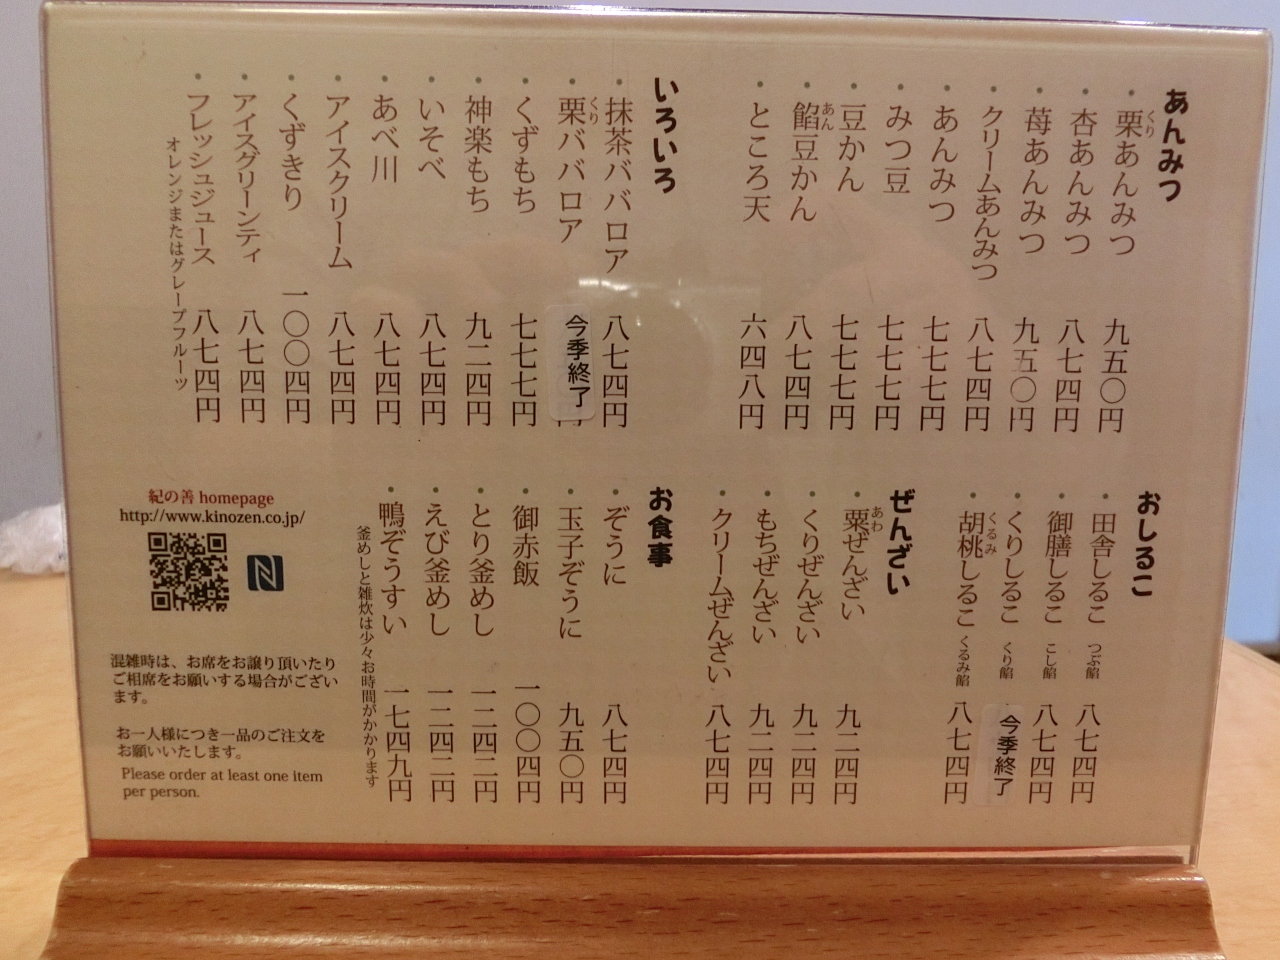 あんみつ
・栗あんみつ 九五〇円
くり
・杏あんみつ 八七四円
・苺あんみつ 九五〇円
・クリームあんみつ 八七四円
・あんみつ 七七七円
・みつ豆 七七七円
・豆かん 七七七円
・餡豆かん 八七四円
あん
・ところ天 六四八円
いろいろ
・抹茶ババロア 八七四円
・栗ババロア 今季終了
くり
・くずもち 七七七円
・神楽もち 九二四円
・いそべ 八七四円
・あべ川 八七四円
・アイスクリーム 八七四円
・くずきり 一〇〇四円
・アイスグリーンティ 八七四円
・フレッシュジュース 八七四円
オレンジまたはグレープフルーツ
おしるこ
・田舎しるこ つぶ餡 八七四円
・御膳しるこ こし餡 八七四円
・くりしるこ くり餡 今季終了
・胡桃しるこ くるみ餡 八七四円
くるみ
ぜんざい
・粟ぜんざい 九二四円
あわ
・くりぜんざい 九二四円
・もちぜんざい 九二四円
・クリームぜんざい 八七四円
お食事
・ぞうに 八七四円
・玉子ぞうに 九五〇円
・御赤飯 一〇〇四円
・とり釜めし 一二四二円
・えび釜めし 一二四二円
・鴨ぞうすい 一七四九円
釜めしと雑炊は少々お時間がかかります
紀の善 homepage
http://www.kinozen.co.jp/
N
混雑時は、お席をお譲り頂いたり
ご相席をお願いする場合がござい
ます。
お一人様につき一品のご注文を
お願いいたします。
Please order at least one item
per person.